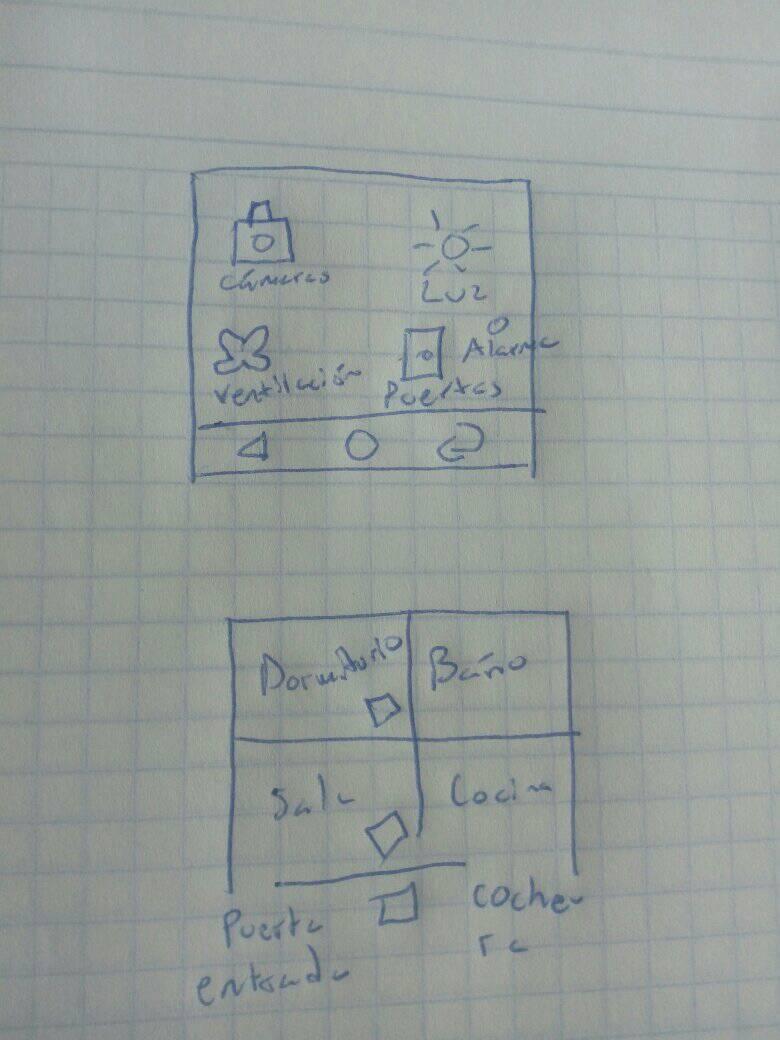 Cámaras
Luz
Ventilación
Puertas
Alarma
Dormitorio
Baño
Sala
Cocina
Puerta
entrada
coche
ra